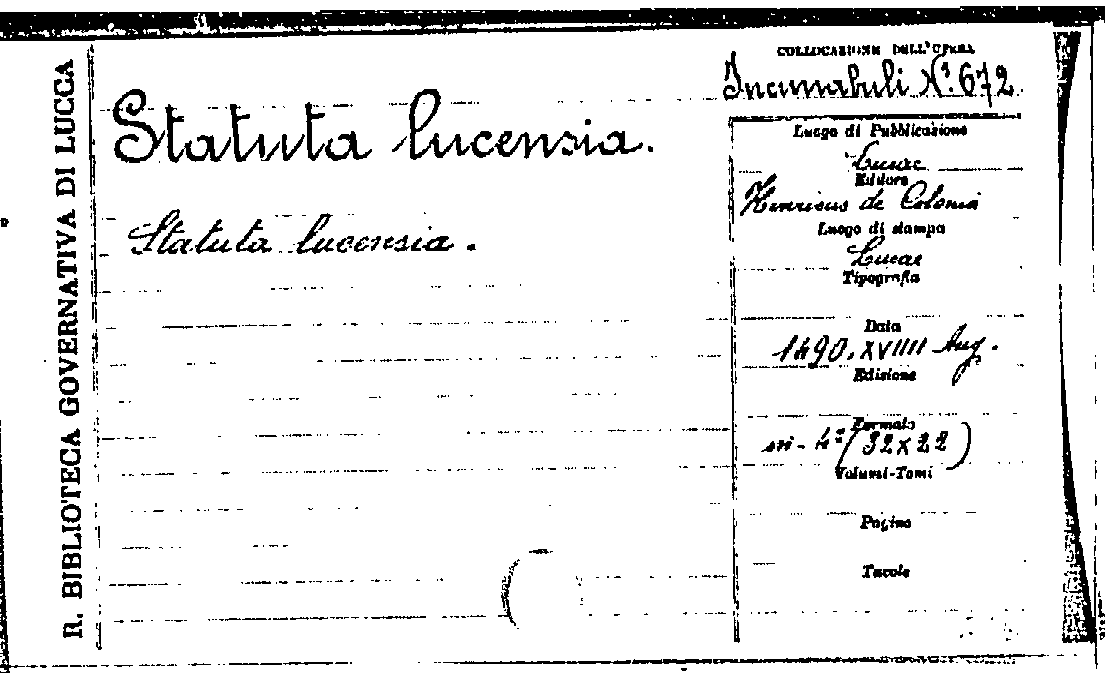 R. BIBLIOTECA GOVERNATIVA DI LUCCA
Statuta lucensia.
Statuta lucensia.
COLLOCAZIONE DELL'OPERA
Incunabuli N.º 672
Luogo di Pubblicazione
Lucae
Editore
Henricus de Colonia
Luogo di stampa
Lucae
Tipografia
Data
1490, XVIIII Aug.
Edizione
Formato
in-4º (32x22)
Volumi-Tomi
Pagine
Tavole